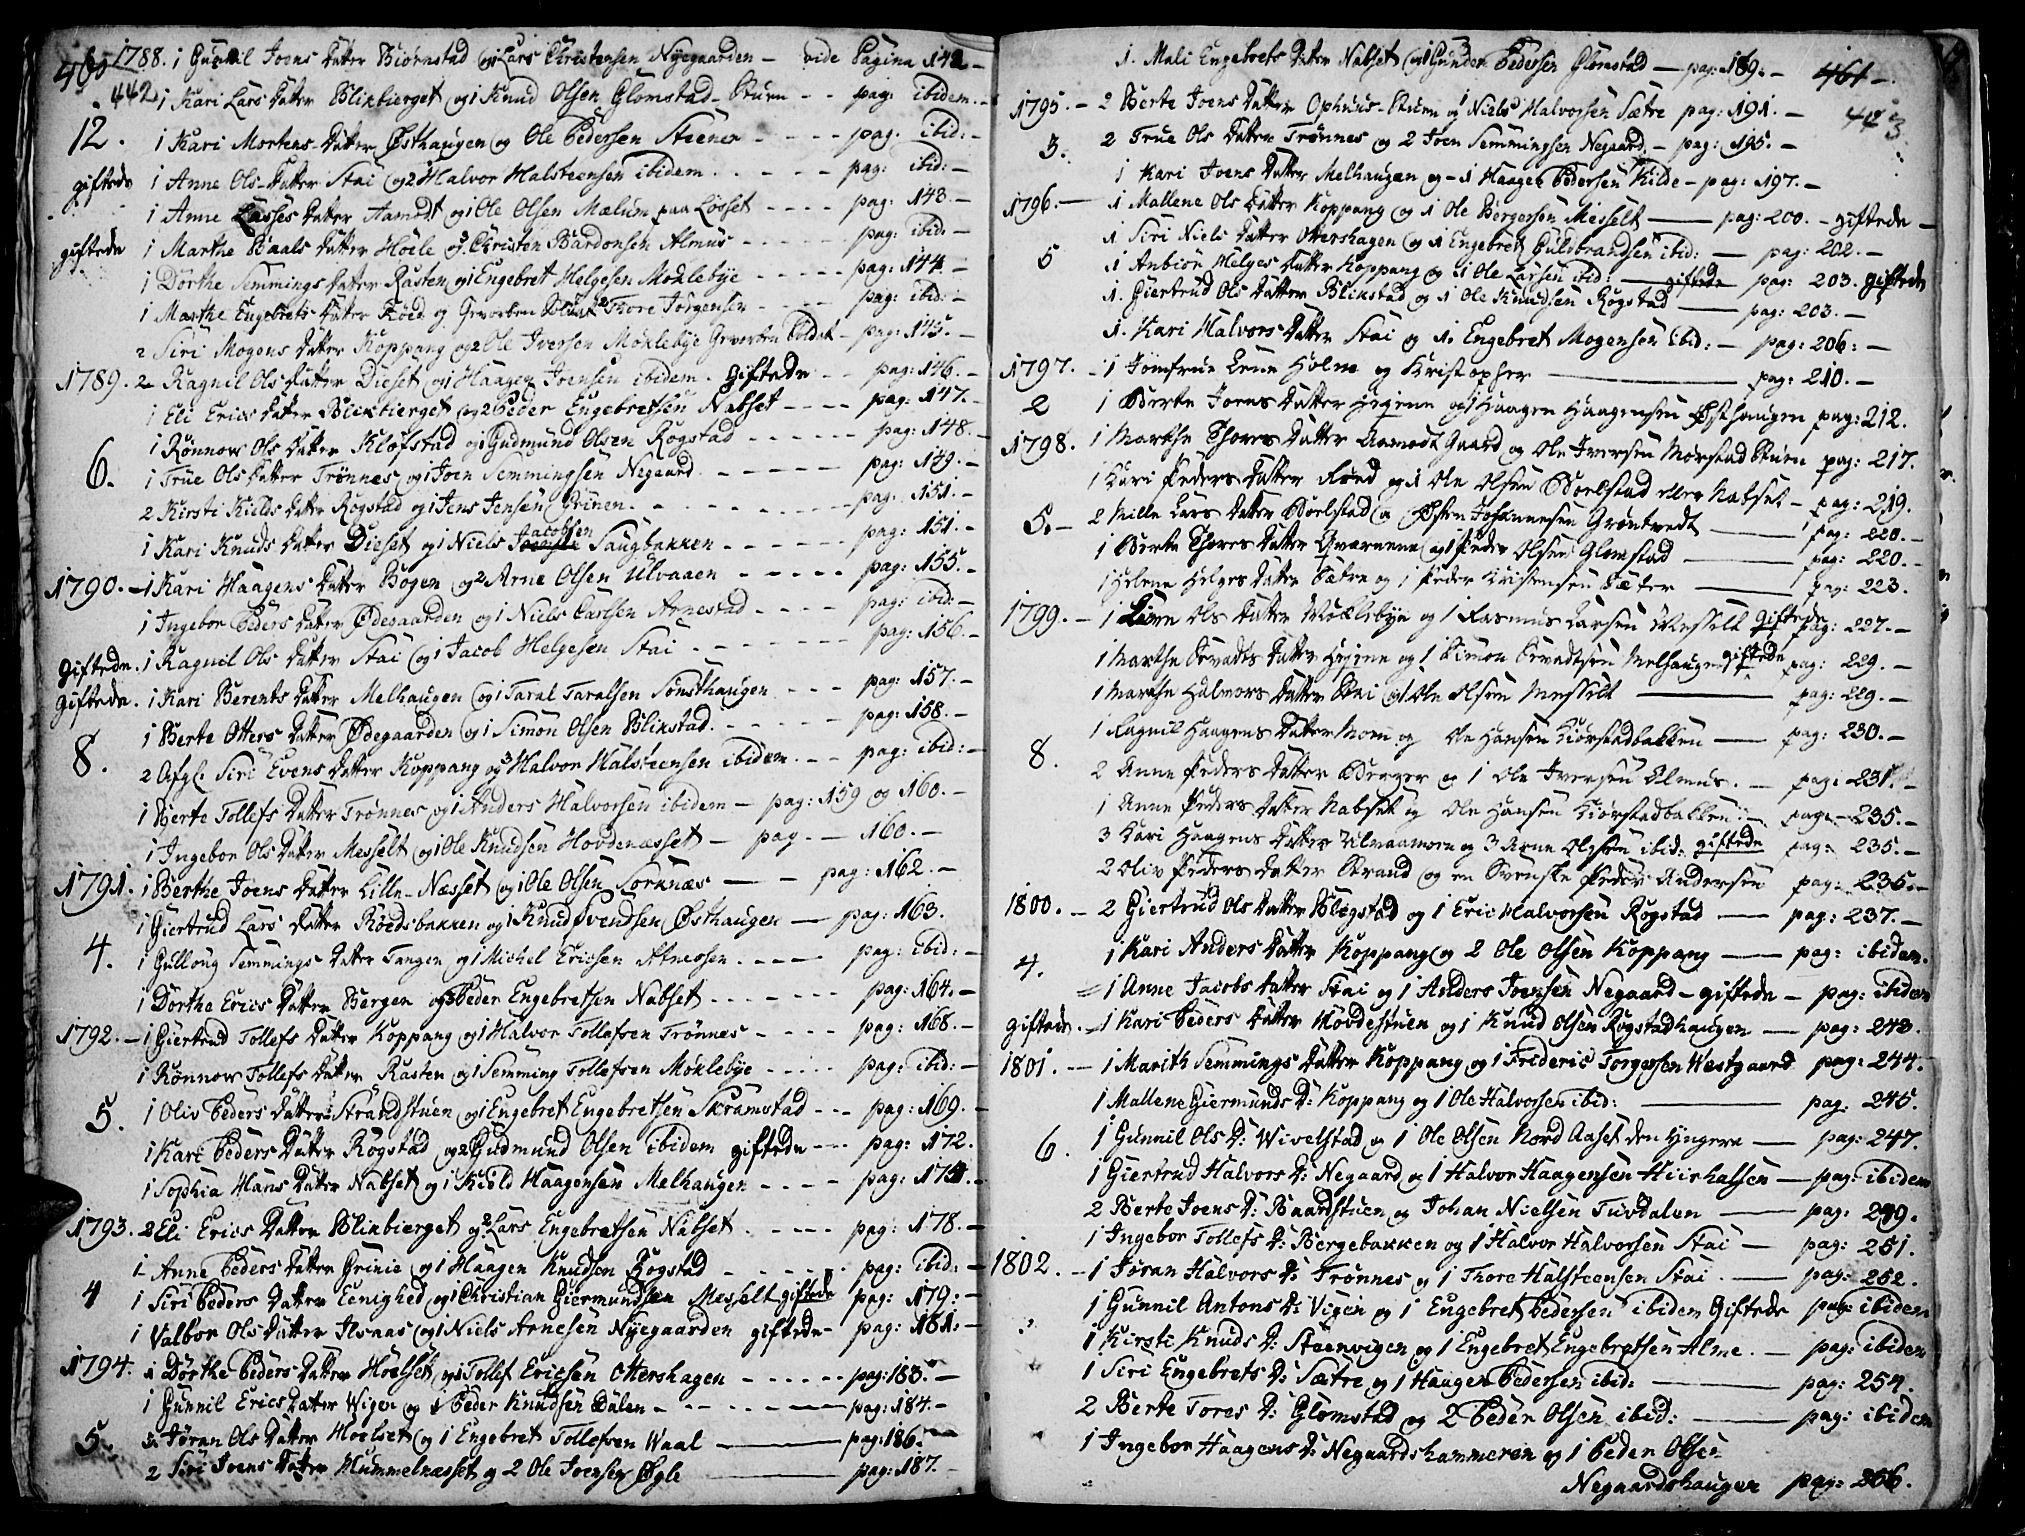 460
1788. 1 Gunnil Joens Datter Biørnstad og 1 Lars Christensen Nyegaarden - vide Pagina 142 -
442 1 Kari Lars Datter Blikbierget og 1 Knud Olsen Glomstad-Stuen - - pag: ibidem. -
12. 1 Kari Mortens Datter Østhaugen og Ole Pedersen Steener - - - - pag: ibid: -
giftede 1 Anne Ols Datter Stai og 2 Halvor Halsteensen ibidem - - - - pag: ibid: -
1 Anne Lasses Datter Aamodt og 1 Ole Olsen Mælum paa Løsset - - - - pag: 143 -
giftede 1 Marthe Paals Datter Høile og Christen Bardonsen Almus - - - - pag: ibid: -
1 Dorthe Semmings Datter Rasten og 1 Engebret Helgesen Moklebye - - - - pag: 144 -
1 Marthe Engebrets Datter Koed og Gevorben Soldat Thore Jørgensen - - - pag: ibid: -
2 Siri Mogens Datter Koppang og 2 Ole Iversen Møklebye Gevorben Soldat - pag: 145. -
1789. 2 Ragnil Ols Datter Dieset og 1 Haagen Joensen ibidem. giftede - - pag: 146. -
1 Eli Erics Datter Blikbierget og 2 Peder Engebretsen Nabset - - - - pag: 147. -
1 Rønnow Ols Datter Kløfstad og 1 Gudmund Olsen Rogstad - - - - - pag: 148. -
6. 1 True Ols Datter Trønnes og 1 Joen Semmingsen Negaard - - - - - pag: 149. -
2 Kirsti Kields Datter Rogstad og 1 Jens Jensen Grinen - - - - - pag: 151. -
1 Kari Knuds Datter Dieset og 1 Niels Jacobsen Saugbakken - - - - - pag: 151. -
1790. - 1 Kari Haagens Datter Bogen og 2 Arne Olsen Ulvaaen - - - - - pag: 155. -
1 Ingebor Peders Datter Ødegaarden og 1 Niels Carlsen Arnestad - - - - pag: ibid: -
giftede. 1 Ragnil Ols Datter Stai og 1 Jacob Helgesen Stai - - - - - pag: 156. -
giftede. 1 Kari Berents Datter Melhaugen og 1 Taral Taralsen Sønsthaugen - - - pag: 157. -
1 Berte Otters Datter Ødegaarden og 1 Simon Olsen Blikstad - - - - - pag: 158. -
8. 2 Afgl: Siri Evens Datter Koppang og 3 Halvor Halsteensen ibidem - - - pag: ibid: -
1 Berte Tollefs Datter Trønnes og 1 Anders Halvorsen ibidem - pag: 159 og 160. -
1 Ingebor Ols Datter Messelt og 1 Ole Knudsen Hovdenæsset - pag. - 160. -
1791. 1 Berthe Joens Datter Lille-Næsset og 1 Ole Olsen Sorknæs - - pag: 162. -
1 Giertrud Lars Datter Roedsbakken og 1 Knud Svendsen Østhaugen - pag: 163.
4. 1 Gullong Semmings Datter Tangen og 1 Michel Ericsen Atneosen - - - - pag: ibid: -
1 Dorthe Erics Datter Bergen og 3 Peder Engebretsen Nabset - - - - - pag: 164. -
1792. - 1 Giertrud Tollefs Datter Koppang og 1 Halvor Tollefsen Trønnes - - - - pag: 168. -
1 Rønnow Tollefs Datter Rasten og 1 Semming Tollefsen Moklebye - - - - pag: ibid: -
5. 1 Oliv Peders Datter Strandstuen og 1 Engebret Engebretsen Skramstad - - - pag: 169. -
1 Kari Peders Datter Rogstad og 2 Gudmund Olsen ibidem giftede - - - pag: 172.
1 Sophia Hans Datter Nabset og 1 Kield Haagensen Melhaugen - - - - pag: 174. -
1793. 2 Eli Erics Datter Blikbierget og 2 Lars Engebretsen Nabset - - - - pag: 178. -
1 Anne Peders Datter Grinie og 1 Haagen Knudsen Rogstad - - - - - pag: ibid: -
4 1 Siri Peders Datter Eenighed og 1 Christian Giermundsen Messelt giftede pag: 179: -
1 Valbor Ols Datter Ilsaas og 1 Niels Arnesen Nyegaarden giftede - pag: 181. -
1794. 1 Dorthe Peders Datter Hoelset og 1 Tollef Ericsen Ottershagen - - - - - pag: 183. -
1 Gunnil Erics Datter Wigen og 1 Peder Knudsen Dalen - - - - - pag: 184. -
5. 3 Jøran Ols Datter Hoelset og 1 Engebret Tollefsen Waal - pag: 186. -
2 Siri Joens Datter Hummelnæsset og 2 Ole Joensen Øgle - pag: 187. -
1. Mali Engebrets Datter Nabset og 3 Gunder Pedersen Glomstad - pag: 189. - 461 -
1795. - 2 Berte Joens Datter Ophuus-Stuen og 1 Niels Halvorsen Sætre pag: 191. - 443
3. 2 True Ols Datter Trønnes og 2 Joen Semmingsen Negaard. - pag: 195. -
1 Kari Joens Datter Melhaugen og - 1 Haagen Pedersen Kilde - pag: 197. -
1796. - 1 Mallene Ols Datter Koppang og 1 Ole Borgersen Messelt - pag: 200. - giftede -
1 Siri Niels Datter Ottershagen og 1 Engebret Guldbrandsen ibid: - pag: 202. -
5 1 Anbior Helges Datter Koppang og 1 Ole Larsen ibid: - giftede pag: 203. giftede
1. Giertrud Ols Datter Blikstad og 1 Ole Knudsen Rogstad - pag: 203. -
1. Kari Halvors Datter Stai og 1. Engebret Mogensen ibid: - pag: 206: -
1797. - 1 Jomfrue Lene Holm og Kristopher - pag: 210. -
2 1 Berte Joens Datter Hegene og 1 Haagen Haagensen Østhaugen pag: 212.
1798. 1 Marthe Thores Datter Aamodt Gaard og Ole Iversen Morstad Stuen pag: 217.
1 Kari Peders Datter Koed og 1 Ole Olsen Bolstad eller Nabset - pag: 219.
5. - 2 Mille Lars Datter Bolstad og Østen Johannesen Grøntvedt - pag: 220. -
1 Berte Thores Datter Qværnene og 1 Peder Olsen Glomstad - pag: 220. -
1 Helene Helges Datter Sætre og 1 Peder Kristensen Sæter - pag: 223.
1799. - 1 Karen Ols Datter Møklebye og 1 Rasmus Larsen Messelt giftede pag: 227. -
1 Marthe Sevadts Datter Hegene og 1 Simon Sevadtsen Melhaugen giftede pag: 229. -
1 Marthe Halvors Datter Stai og 1 Ole Olsen Messelt - pag: 229. -
1 Ragnil Haagens Datter Moen og Ole Hansen Kiørstadbakken - pag: 230. -
8. 2 Anne Peders Datter Berger og 1 Ole Iversen Almus. - pag: 231. -
1 Anne Peders Datter Nabset og Ole Hansen Kiørstadbakken - pag: 235. -
3 Kari Haagens Datter Ulvaamoen og 3 Arne Olsen ibid: giftede pag: 235. -
2 Oliv Peders Datter Strand og en Svenske Peder Andersen pag: 235. -
1800. - 2 Giertrud Ols Datter Blegstad og 1 Eric Halvorsen Rogstad - pag: 237. -
4. 1 Kari Anders Datter Koppang og 2 Ole Olsen Koppang - pag: ibidem.
1 Anne Jacobs Datter Stai og 1 Anders Joensen Negaard - giftede - pag: ibidem
giftede. - 1 Kari Peders Datter Hovdestuen og 1 Knud Olsen Rogstadhaugen - pag: 243. -
1801. - 1 Marith Semmings Datter Koppang og 1 Frideric Torgersen Westgaard pag: 244.
1 Mallene Giermunds D: Koppang og 1 Ole Halvorsen ibid: - pag. 245.
6. 1 Gunnil Ols D: Wivelstad og 1 Ole Olsen Nord Aaset den Yngere - pag: 247.
1 Giertrud Halvors D: Negaard og 1 Halvor Haagensen Hiirhalsen - pag: ibidem
2 Berte Joens D: Baardstuen og Johan Nielsen Turdalen - pag: 249.
1 Ingebor Tollefs D: Bergebakken og 1 Halvor Halvorsen Stai - pag: 251.
1802. - 1 Jøran Halvors D: Trønnes og 1 Thore Halsteensen Stai. - pag: 252.
1 Gunnil Antons D: Vigen og 1 Engebret Pedersen ibidem Giftede pag: ibidem
1 Kirsti Knuds D: Steenvigen og 1 Engebret Engebretsen Alme. - pag: ibidem
1 Siri Engebrets D: Sætre og 1 Haagen Pedersen ibid: - pag: 254.
2 Berte Tores D: Glomstad og 2 Peder Olsen ibid: - pag: ibidem
1 Ingebor Haagens D: Negaardshammeren og 1 Peder Olsen
Negaardshaugen pag: 256.